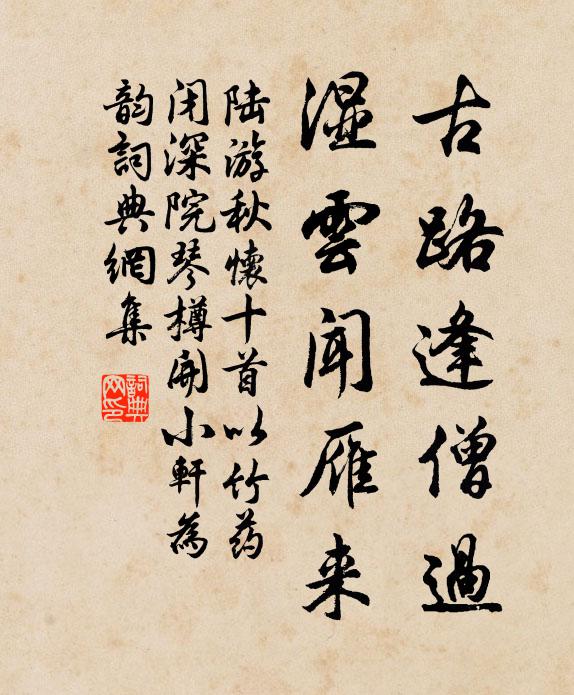 古路逢僧過
湿雲聞雁来
陆游秋懷十首以竹药
闭深院琴樽開小軒為
韵詞典網集
詞典
网印